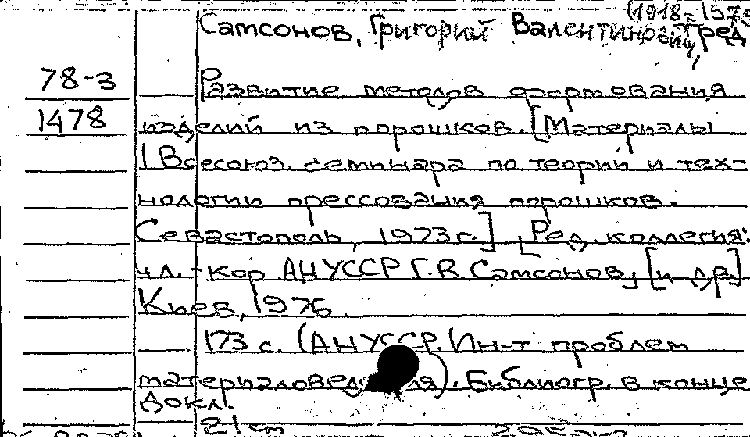 (1918-1975
Самсонов, Григорий Валентинович, ред
78-3 Развитие методов формования
1478 изделий из порошков. [Материалы
I Всесоюз. семинара по теории и тех-
нологии прессования порошков.
Севастополь, 1973 г.] [Ред. коллегия:
чл.-кор АН УССР Г.В. Самсонов, [и др.]
Киев, 1976.
173 с. (АН УССР. Ин-т проблем
материаловедения). Библиогр. в конце
докл.
21 см